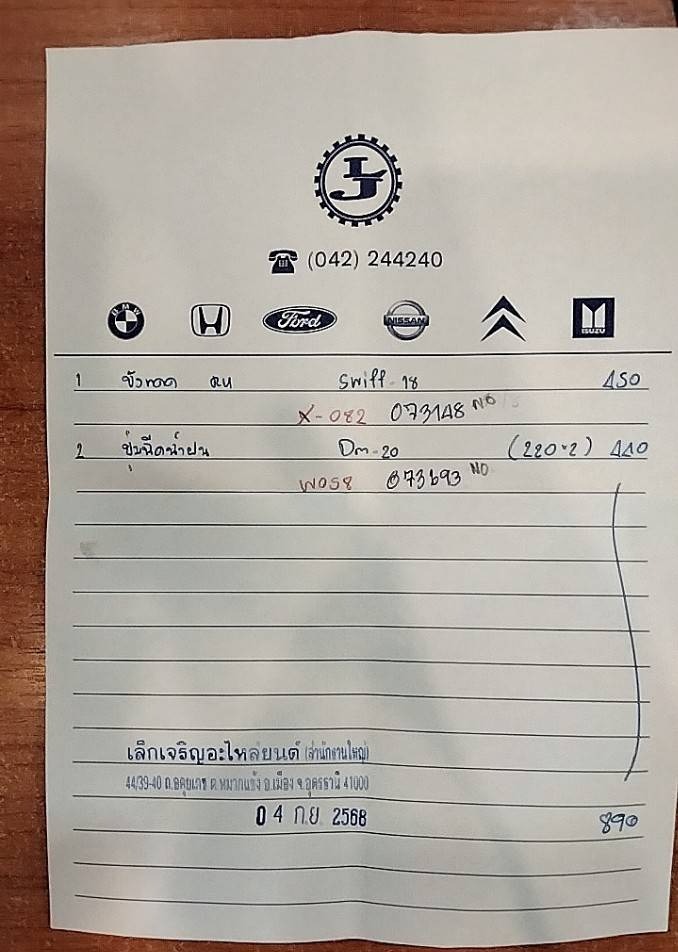 LJ
(042) 244240
BMW Ford NISSAN ISUZU
1 Swift-18 450
X-082 073148 NO
2 ปั๊มฉีดน้ำฝน Dm-20 (220×2) 440
W058 073693 NO
เล็กเจริญอะไหล่ยนต์ (สำนักงานใหญ่)
44/39-40 ถ.อดุยเดช ต.หมากแข้ง อ.เมือง จ.อุดรธานี 41000
04 ก.ย. 2568
890